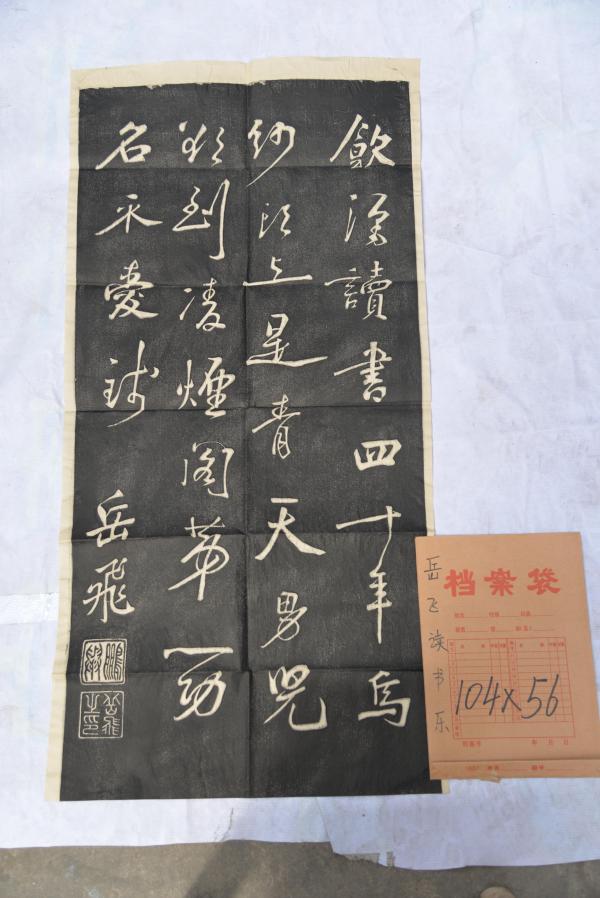 飲酒讀書四十年烏
紗頭上是青天男兒
欲到凌煙閣第一功
名不愛錢 岳飛
鵬舉
岳飛之印
档案袋
岳飞读书乐
104×56
年 月 日